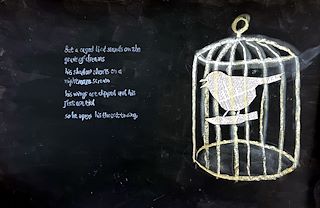 But a caged bird stands on the
grave of dreams
his shadow shouts on a
nightmare scream
his wings are clipped and his
feet are tied
so he opens his throat to sing.